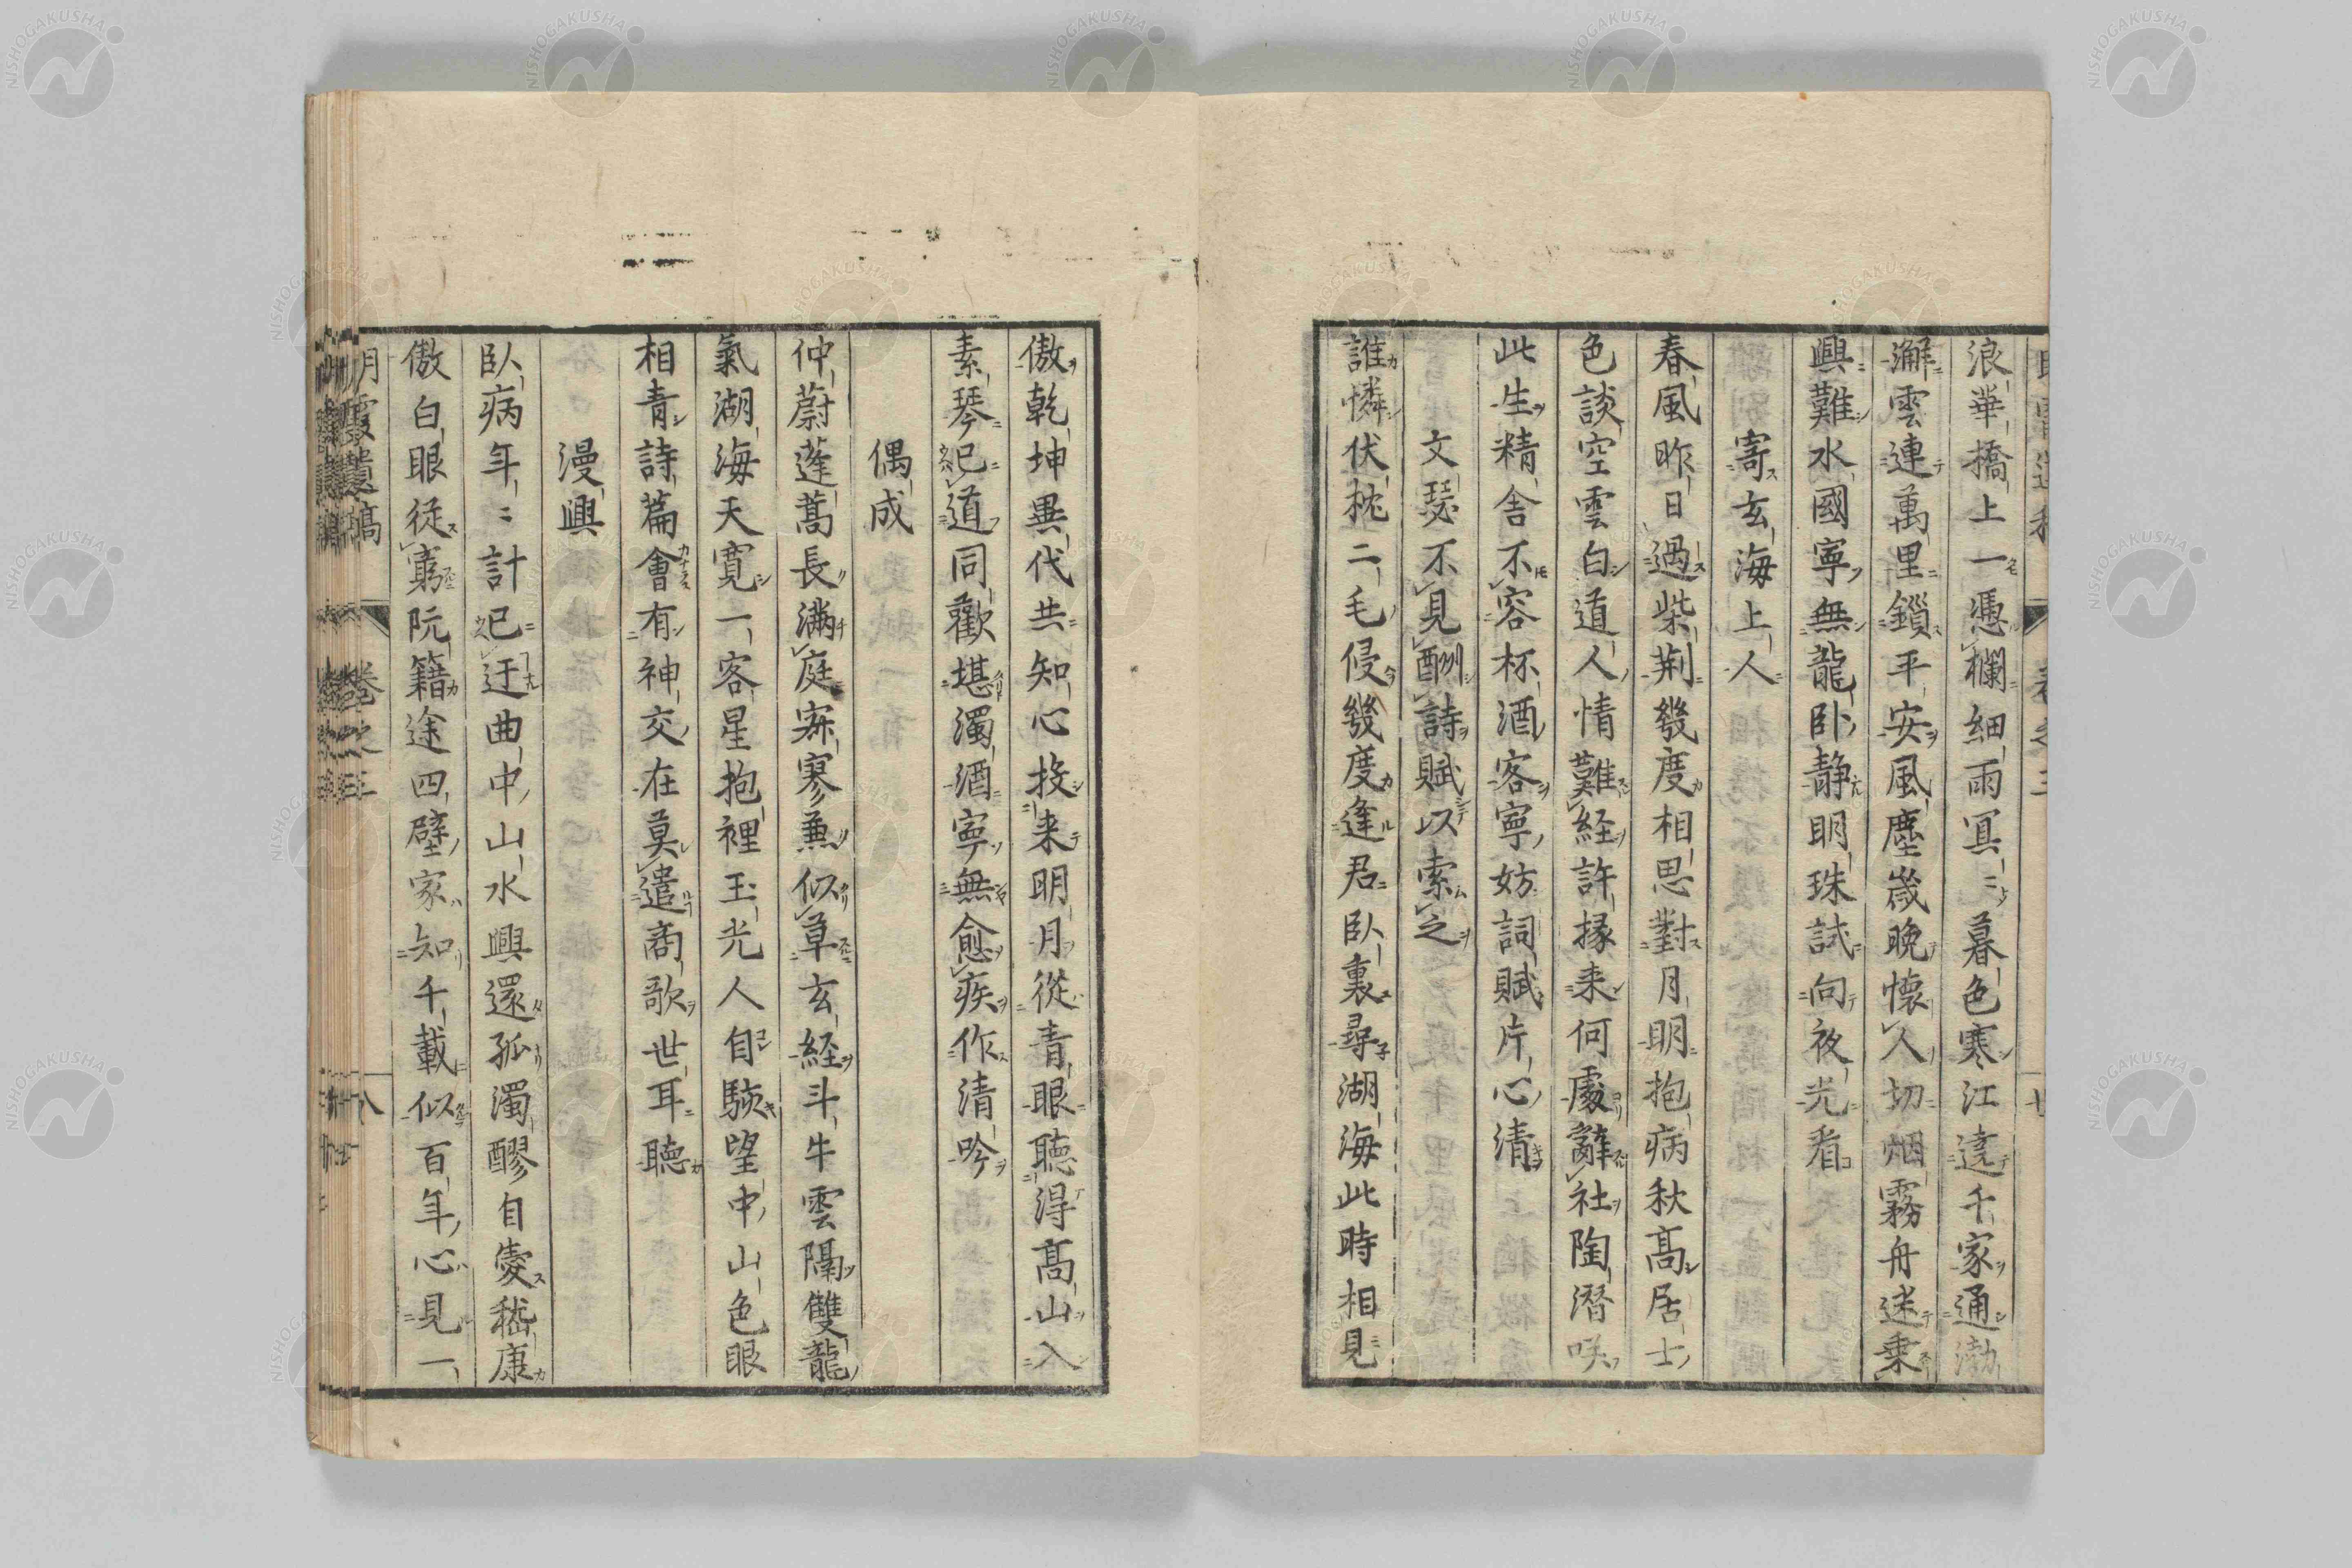 浪華橋上一憑欄細雨冥〻暮色寒江遶千家通渤
澥雲連萬里鎖平安風塵歲晚懷人切烟霧舟迷乗
興難水國寧無龍臥靜明珠試向夜光看
寄玄海上人
春風昨日過柴荆幾度相思對月明抱病秋髙居士
色談空雲白道人情難経許掾来何處辭社陶潛咲
此生精舎不容杯酒客寧妨詞賦片心清
文瑟不見酬詩賦以索之
誰憐伏枕二毛侵幾度逢君臥裏尋湖海此時相見
傲乾坤異代共知心投来明月從青眼聴得髙山入
素琴已道同歡堪濁酒寧無愈疾作清吟
偶成
仲蔚蓬蒿長滿庭寂寥兼似草玄経斗牛雲隔雙龍
氣湖海天寬一客星抱裡玉光人自駭望中山色眼
相青詩篇會有神交在莫遣商歌世耳聴
漫興
臥病年〻計已迂曲中山水興還孤濁醪自愛嵇康
傲白眼従窮阮籍途四壁家知千載似百年心見一
明霞遺稿 卷之三 八